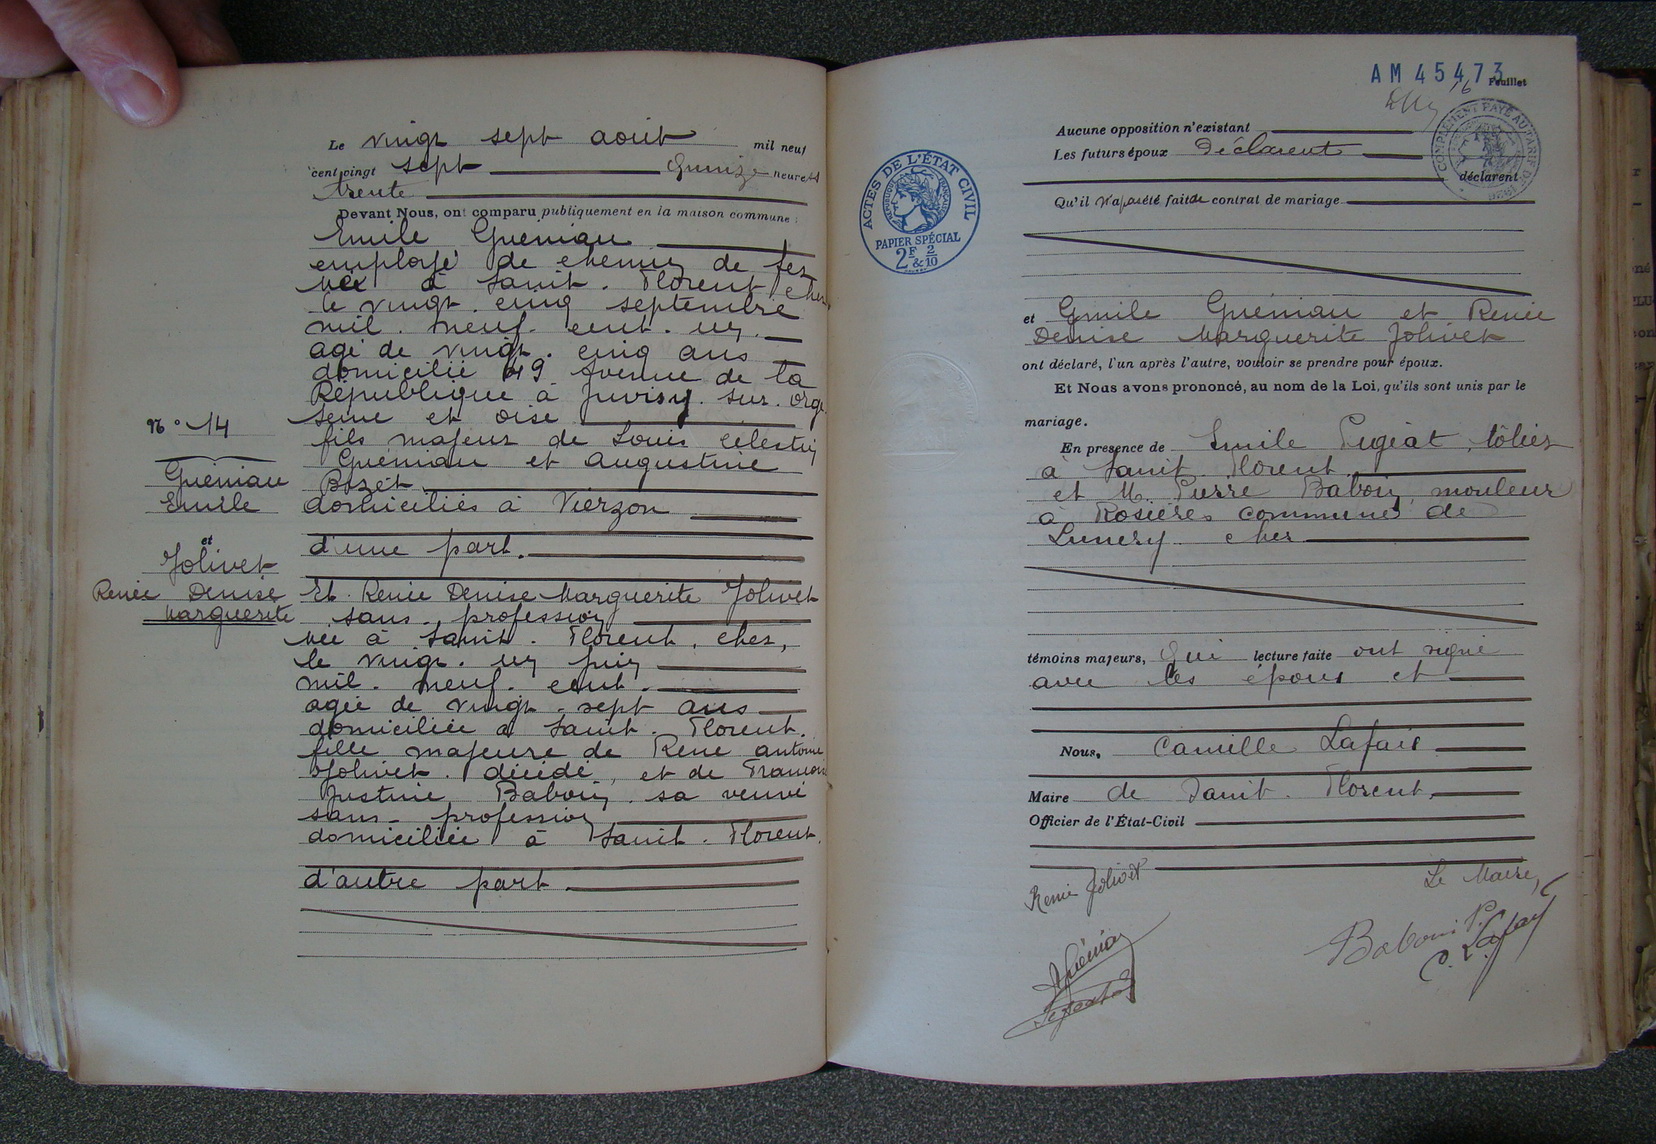 Le vingt sept août mil neuf
cent vingt sept quinze heures
trente
Devant Nous, ont comparu publiquement en la maison commune :
Emile Guéniau
employé de chemin de fer
né à Saint. Florent cher
le vingt. cinq septembre
mil. neuf. cent. un.
agé de vingt. cinq ans
domicilié 49 Avenue de la
République à Juvisy. sur. orge
seine et oise
fils majeur de Louis célestin
Guéniau et augustine
Bozet.
domiciliés à Vierzon
d'une part.
N° 14
Guéniau
Emile
et
Jolivet
Renée Denise
Marguerite
Et Renée Denise Marguerite Jolivet
sans. profession
née à Saint. Florent. cher,
le vingt. un juin
mil. neuf. cent.
agée de vingt. sept ans
domiciliée à Saint. Florent.
fille majeure de René antoine
Jolivet. décédé, et de
Justine Babouin. sa veuve
sans. profession
domiciliée à Saint. Florent.
d'autre part.
AM 45473
Feuillet
16
COMPLÉMENT PAYÉ AU TARIF DE
ACTES DE L'ÉTAT CIVIL
RÉPUBLIQUE FRANÇAISE
PAPIER SPÉCIAL
2F & 2/10
Aucune opposition n'existant
Les futurs époux déclarent
déclarent
Qu'il n'a pas été fait de contrat de mariage
et Emile Guéniau et Renée
Denise Marguerite Jolivet
ont déclaré, l'un après l'autre, vouloir se prendre pour époux.
Et Nous avons prononcé, au nom de la Loi, qu'ils sont unis par le
mariage.
En présence de Emile tôlier
à Saint. Florent
et M. Pierre Babouin, mouleur
à Rosières commune de
Lunery. cher
témoins majeurs, qui lecture faite ont signé
avec les époux et
Nous, Camille Lafaix
Maire de Saint. Florent.
Officier de l'État-Civil
Renée Jolivet
Le Maire,
Babouin P.
Guéniau
C. Lafaix